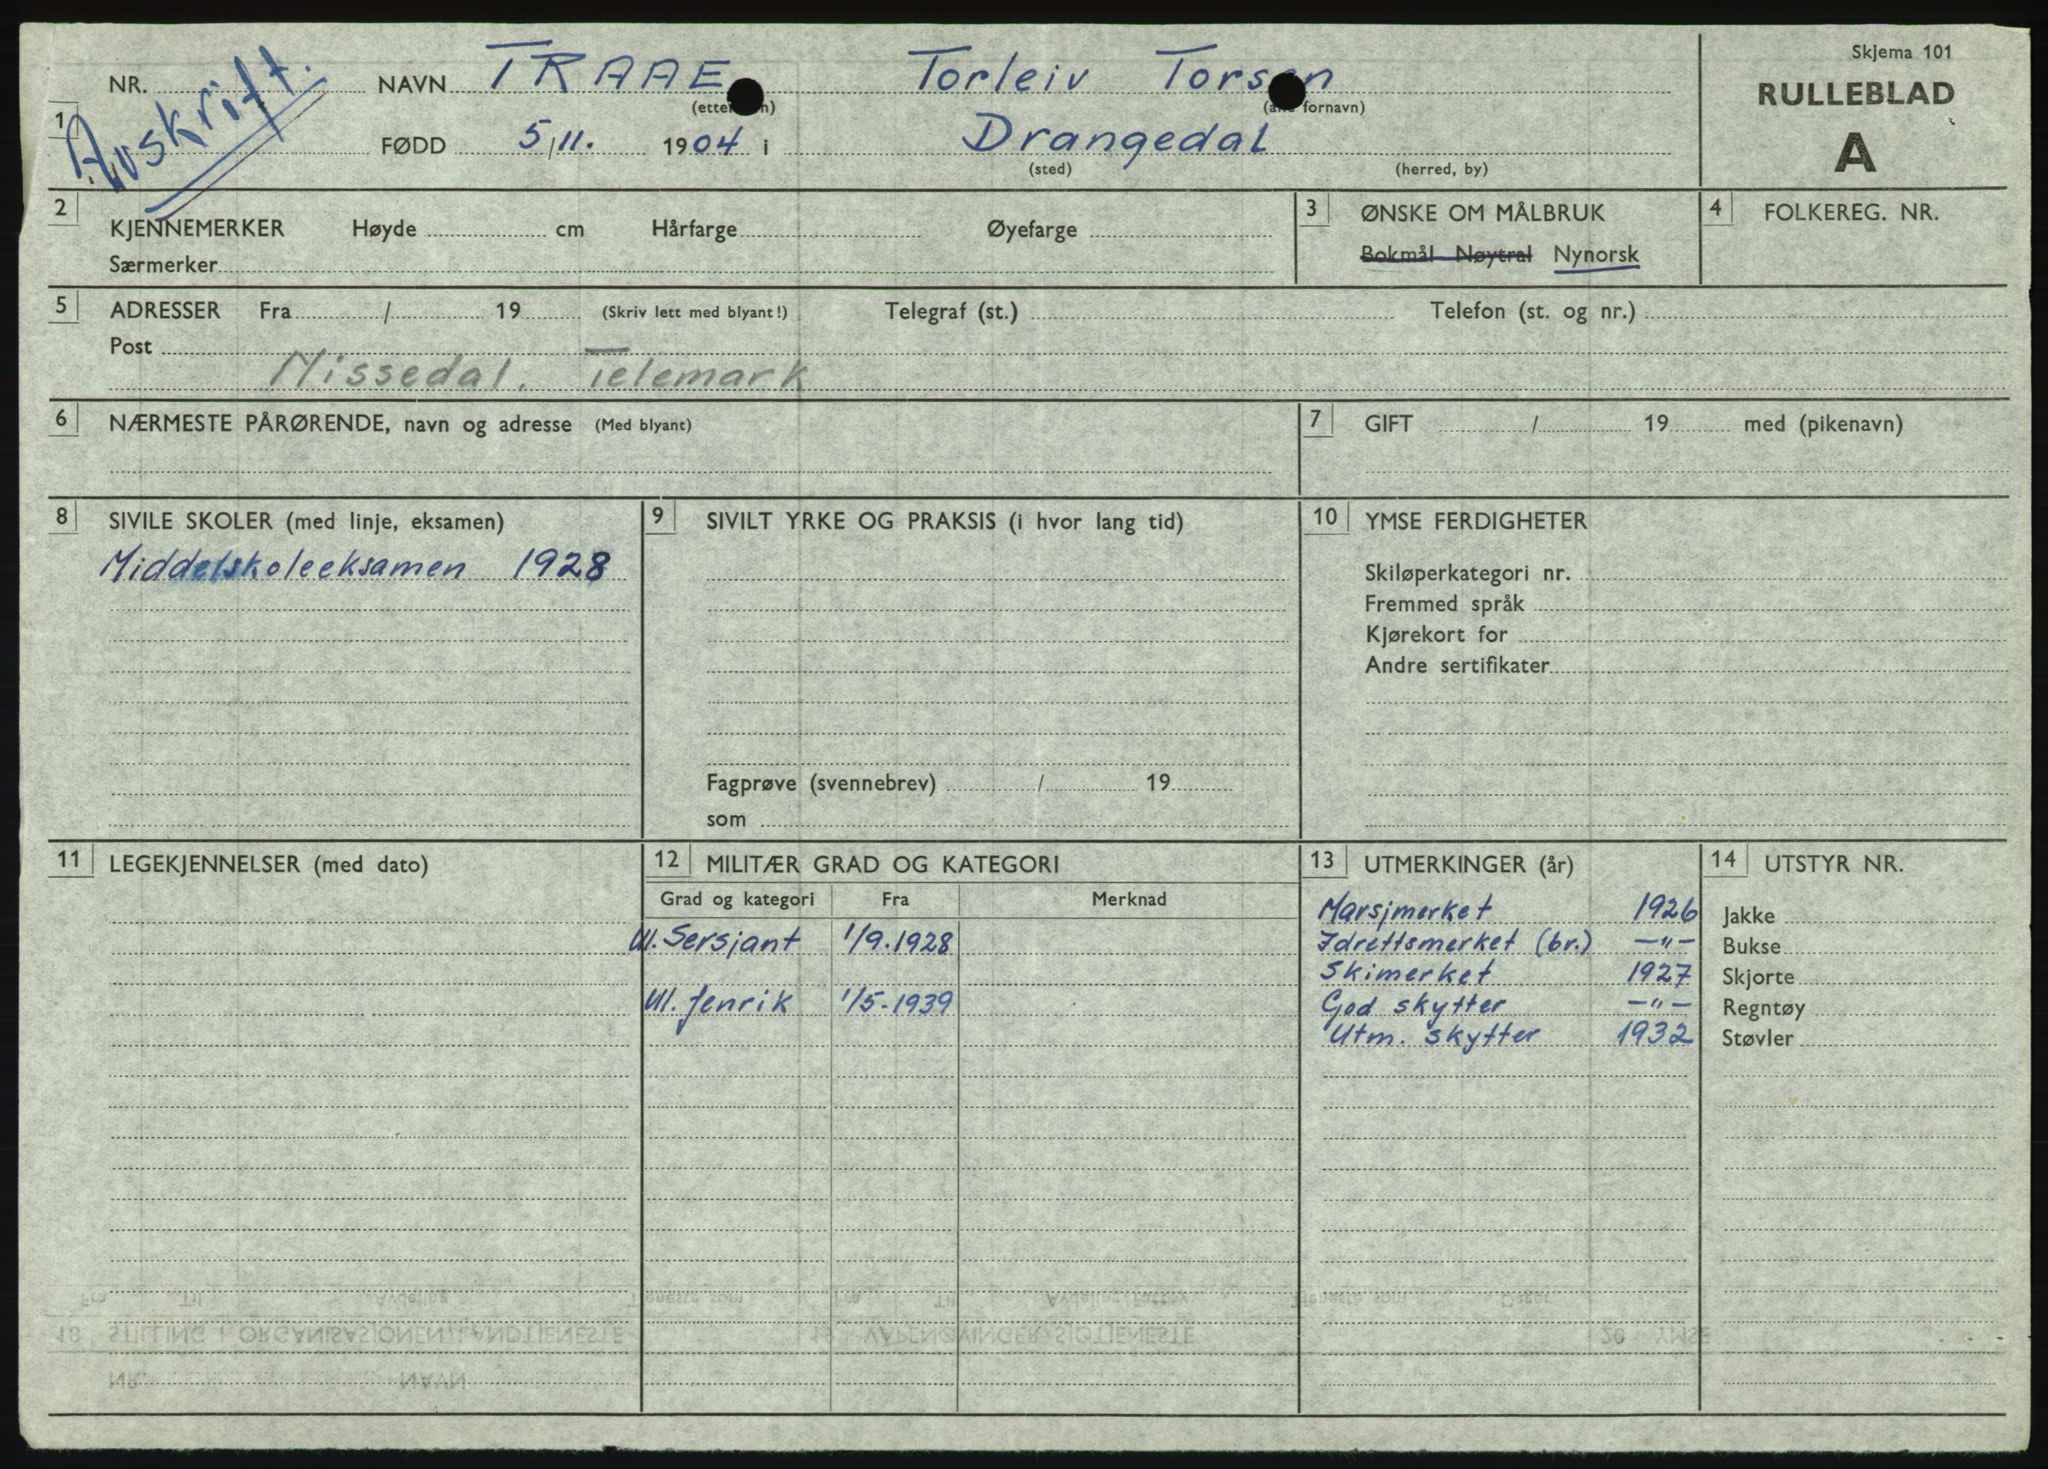 Skjema 101
RULLEBLAD
A
Avskrift.
1 NR. NAVN TRAAE Torleiv Torsen
(alle fornavn)
FØDD 5/11. 1904 i Drangedal
(sted) (herred, by)
2 KJENNEMERKER Høyde cm Hårfarge Øyefarge
Særmerker
3 ØNSKE OM MÅLBRUK
Bokmål Nøytral Nynorsk
4 FOLKEREG. NR.
5 ADRESSER Fra / 19 (Skriv lett med blyant!) Telegraf (st.) Telefon (st. og nr.)
Post
Nissedal. Telemark
6 NÆRMESTE PÅRØRENDE, navn og adresse (Med blyant)
7 GIFT / 19 med (pikenavn)
8 SIVILE SKOLER (med linje, eksamen)
Middelskoleeksamen 1928
9 SIVILT YRKE OG PRAKSIS (i hvor lang tid)
Fagprøve (svennebrev) / 19
som
10 YMSE FERDIGHETER
Skiløperkategori nr.
Fremmed språk
Kjørekort for
Andre sertifikater
11 LEGEKJENNELSER (med dato)
12 MILITÆR GRAD OG KATEGORI
Grad og kategori Fra Merknad
Ul. Sersjant 1/9.1928
Ul. fenrik 1/5-1939
13 UTMERKINGER (år)
Marsjmerket 1926
Idrettsmerket (br.) —"—
Skimerket 1927
God skytter —"—
Utm. skytter 1932
14 UTSTYR NR.
Jakke
Bukse
Skjorte
Regntøy
Støvler